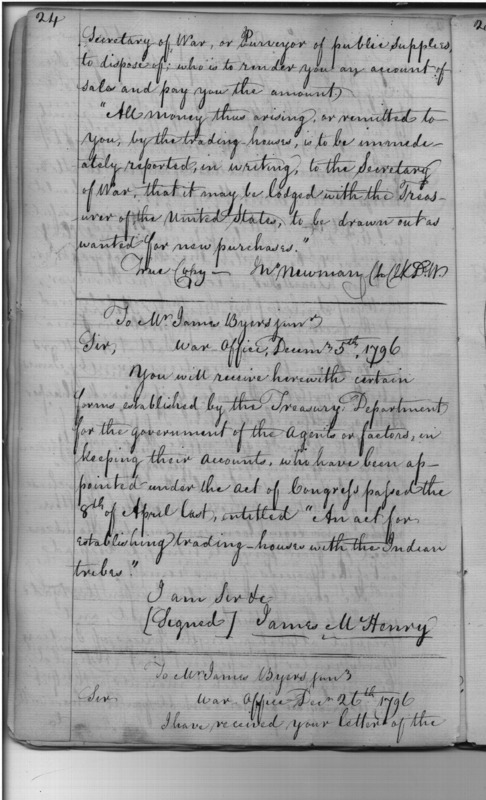 24
Secretary of War, or Purveyor of public supplies,
to dispose of; who is to render you an account of
sales and pay you the amount,
"All money thus arising, or remitted to
you, by the trading-houses, is to be immede-
ately reported, in writing, to the Secretary
of War, that it may be lodged with the Treas-
urer of the United States, to be drawn out as
wanted for new purchases."
True Copy— Newman
To Mr. James Byers junr
Sir, War Office, Decemr 5th, 1796
You will receive herewith certain
forms established by the Treasury Department
for the government of the Agents or factors, in
keeping their accounts, who have been ap-
pointed under the act of Congress passed the
8th of April last, intitled "An act for
establishing trading-houses with the Indian
tribes."
I am Sir &c
[Signed] James McHenry
To Mr James Byers junr
Sir War Office Decr 26th 1796
I have received your letter of the